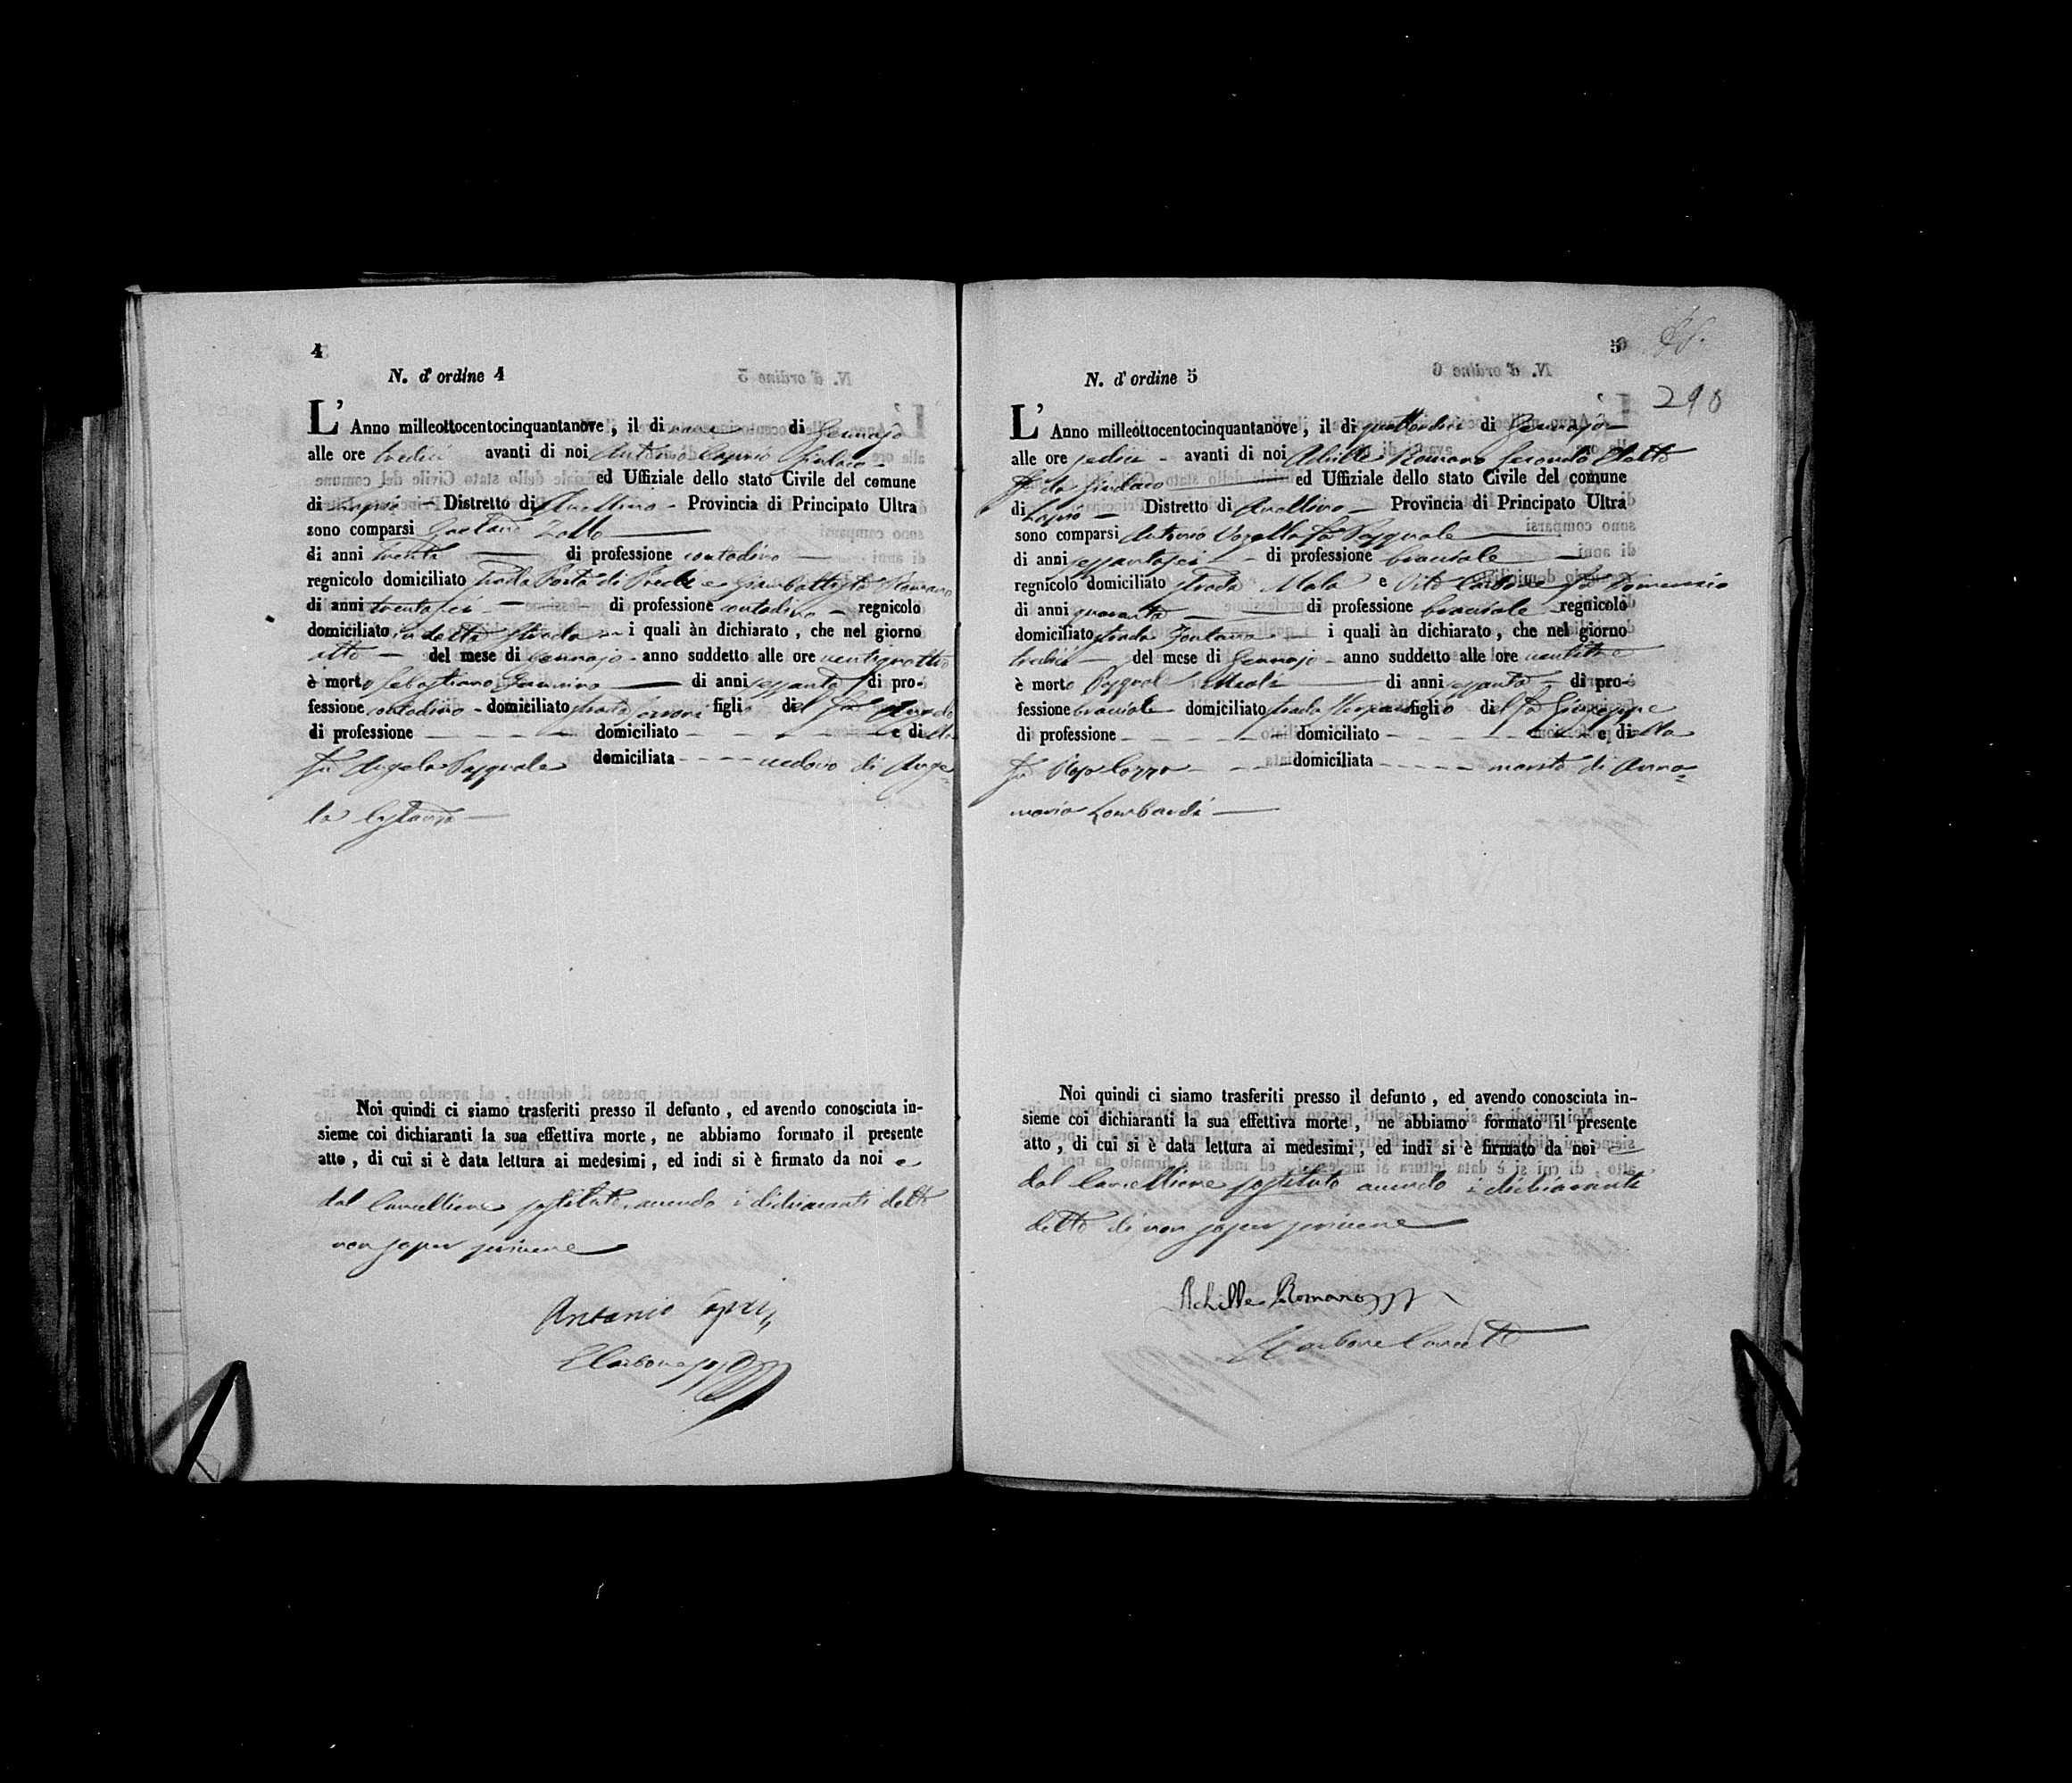 4
N. d'ordine 4
L'Anno milleottocentocinquantanove, il di nove di Gennajo
alle ore tredici avanti di noi Antonio Capri Sindaco
ed Uffiziale dello stato Civile del comune
di Distretto di Avellino - Provincia di Principato Ultra
sono comparsi Gaetano Zollo
di anni trenta di professione contadino
regnicolo domiciliato strada Porta di Piedi e Giambattista Romano
di anni trentasei di professione contadino - regnicolo
domiciliato in detta strada i quali àn dichiarato, che nel giorno
otto del mese di Gennajo - anno suddetto alle ore ventiquattro
è morto Sebastiano di anni sessanta di pro-
fessione contadino - domiciliato strada figlio del fu Angelo
di professione domiciliato e della
fu Angela Pasquale domiciliata vedovo di Ange-
la
Noi quindi ci siamo trasferiti presso il defunto, ed avendo conosciuta in-
sieme coi dichiaranti la sua effettiva morte, ne abbiamo formato il presente
atto, di cui si è data lettura ai medesimi, ed indi si è firmato da noi e
dal Cancelliere sostituto, avendo i dichiaranti detto
non saper scrivere
Antonio Capri
Carbone
5
290
N. d'ordine 5
L'Anno milleottocentocinquantanove, il di quattordici di Gennajo
alle ore sedici - avanti di noi Achille Romano Secondo Eletto
ff. da Sindaco ed Uffiziale dello stato Civile del comune
di Distretto di Avellino - Provincia di Principato Ultra
sono comparsi Antonio fu Pasquale
di anni sessantasei di professione bracciale
regnicolo domiciliato strada Mala e Vito Carbone fu Domenico
di anni quaranta di professione bracciale regnicolo
domiciliato strada Fontana i quali àn dichiarato, che nel giorno
tredici del mese di Gennajo - anno suddetto alle ore ventitre
è morto Pasquale Meoli di anni sessanta di pro-
fessione bracciale domiciliato strada figlio del fu Giuseppe
di professione domiciliato e della
fu Rosa Cozzo domiciliata marito di Anna=
maria Lombardi
Noi quindi ci siamo trasferiti presso il defunto, ed avendo conosciuta in-
sieme coi dichiaranti la sua effettiva morte, ne abbiamo formato il presente
atto, di cui si è data lettura ai medesimi, ed indi si è firmato da noi e
dal Cancelliere sostituto avendo i dichiaranti
detto di non saper scrivere
Achille Romano
Carbone